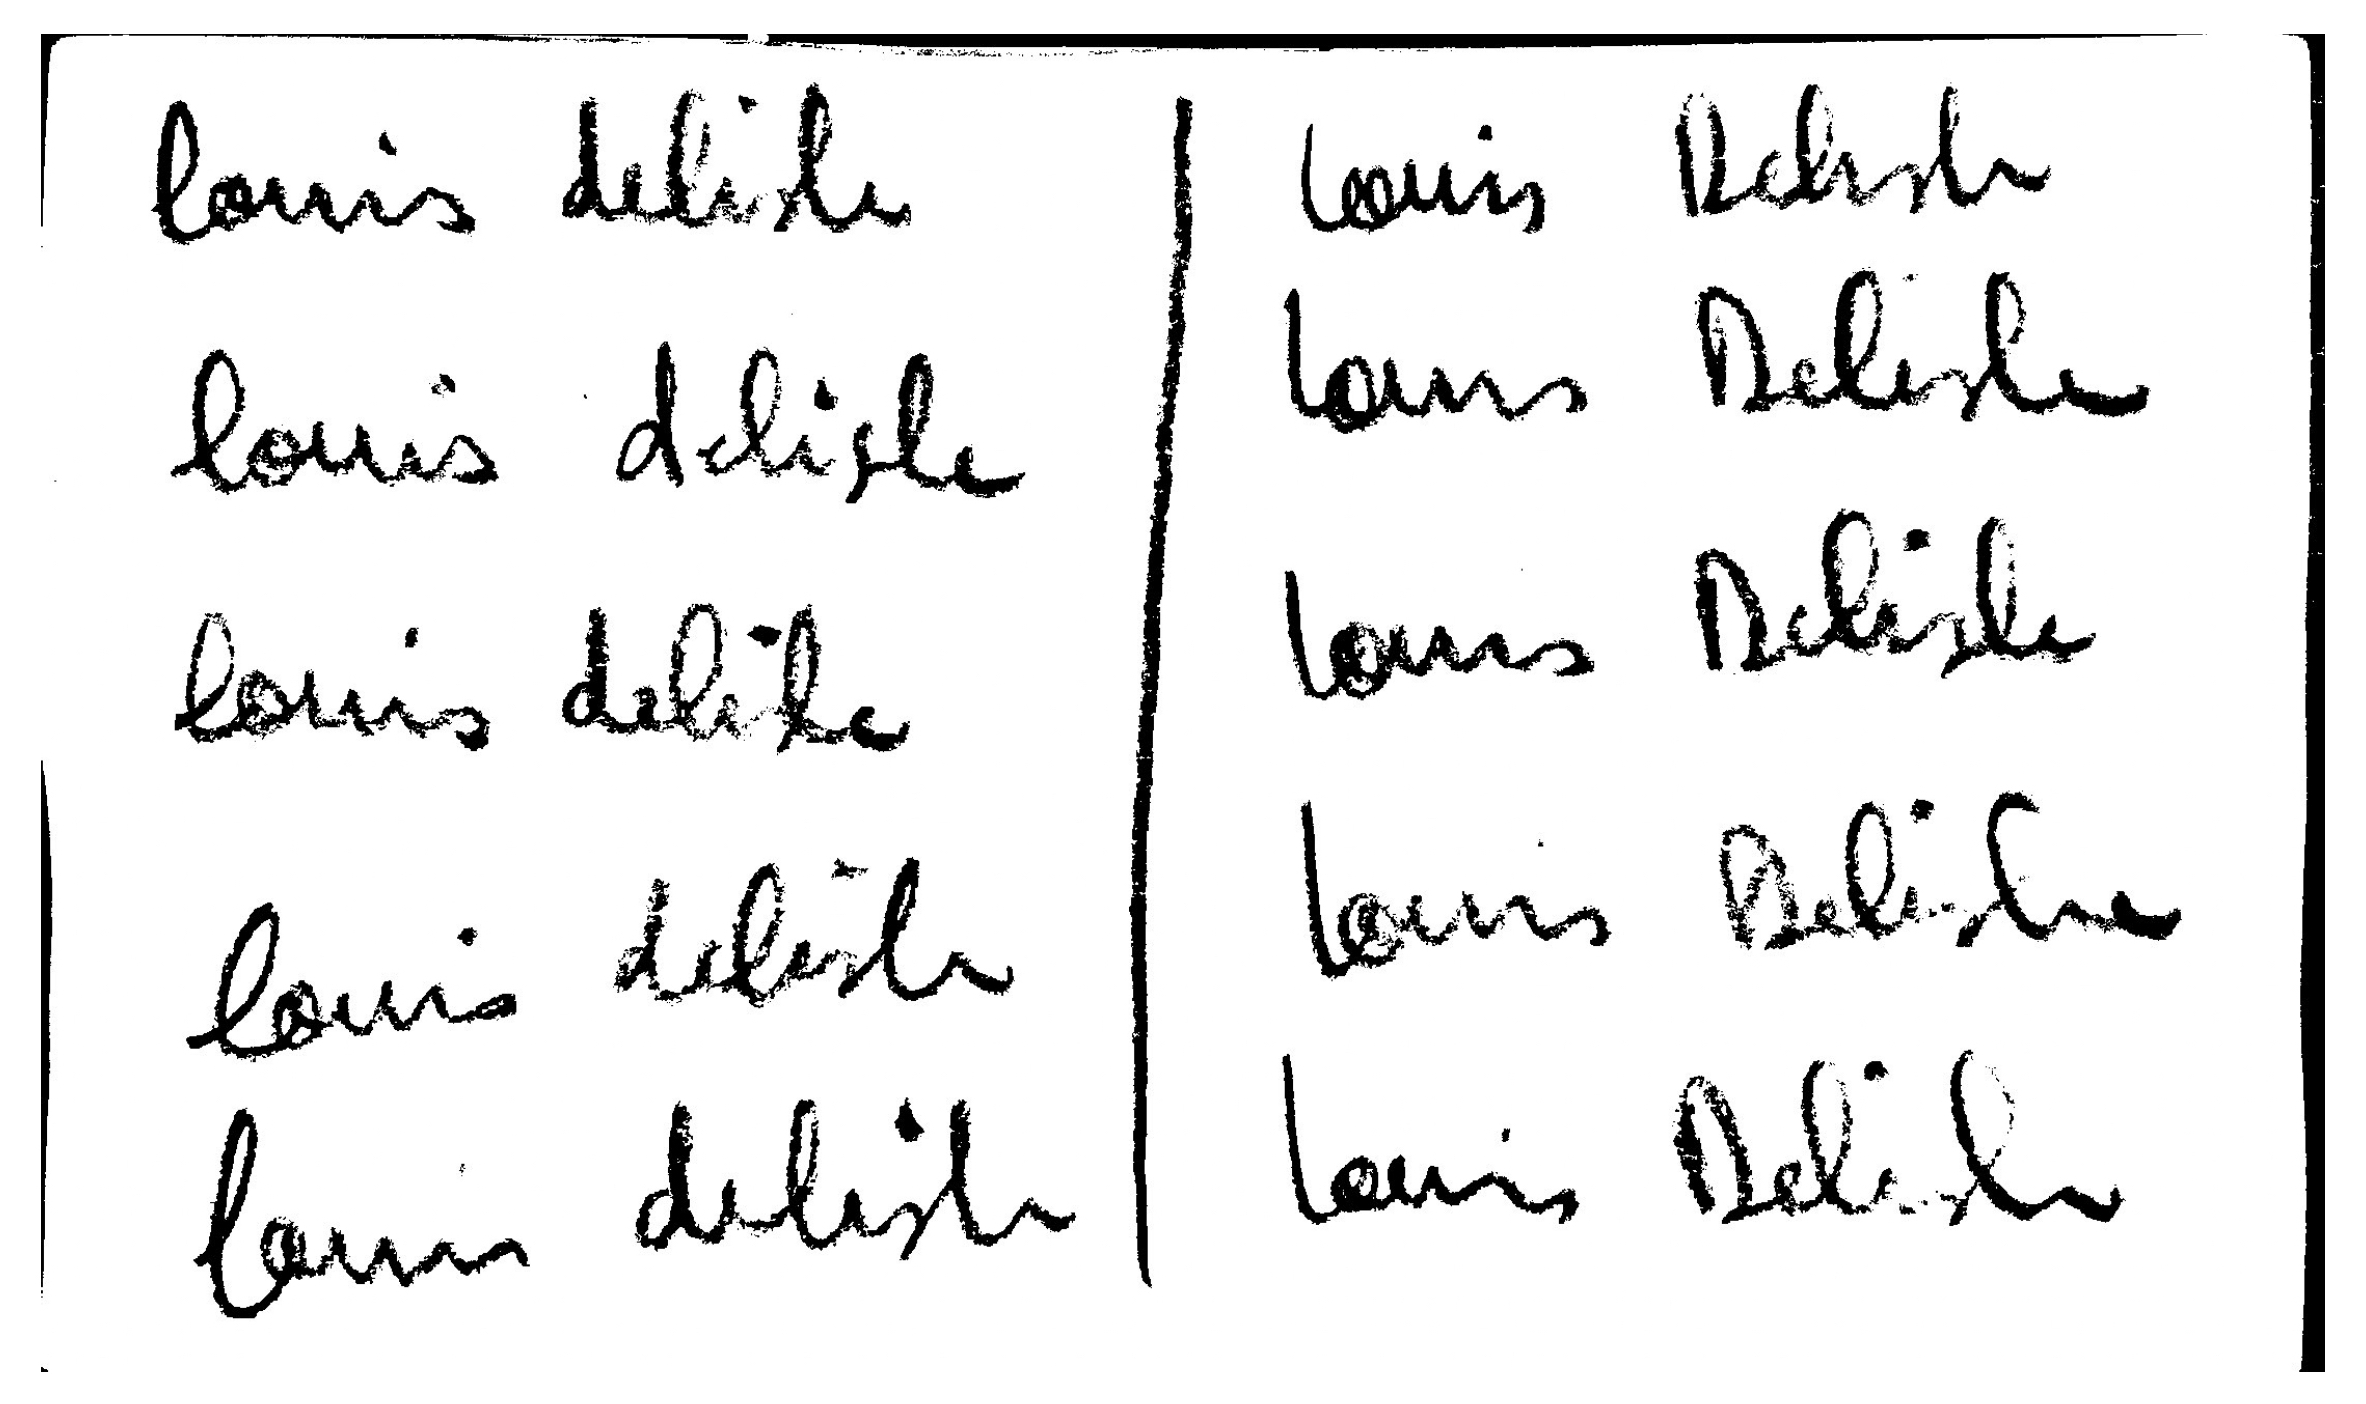 louis delisle
louis delisle
louis delisle
louis delisle
louis delisle
Louis Delisle
Louis Delisle
Louis Delisle
Louis Delisle
Louis Delisle